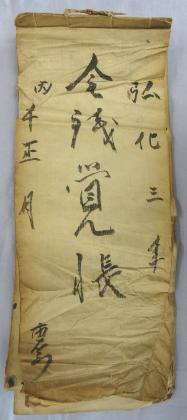 弘化三年
金銭覚帳
丙午正月